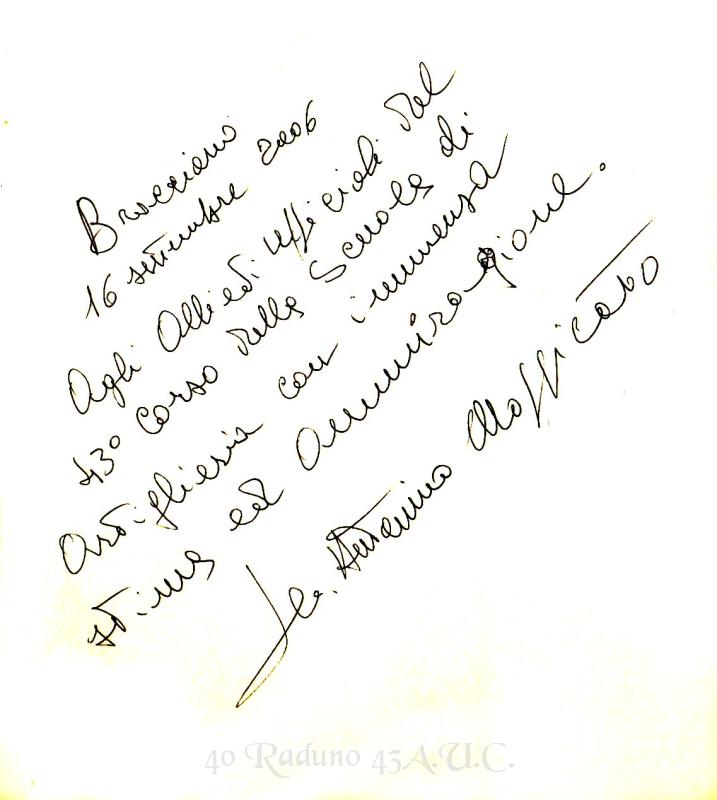 Bracciano
16 settembre 2006
Agli Allievi ufficiali del
43° Corso della Scuola di
Artiglieria con immensa
stima ed ammirazione.
Antonino
40 Raduno 43A.U.C.